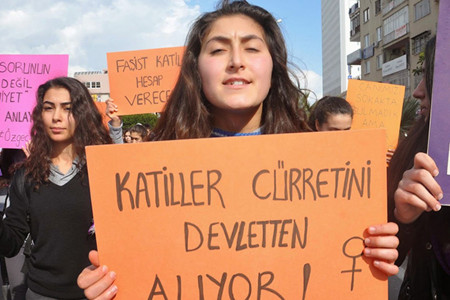 SORUNUN
DEĞİL
ANLA
FAŞİST KATİL
HESAP
VERECE
KATİLLER CÜRRETİNİ
DEVLETTEN
ALIYOR!